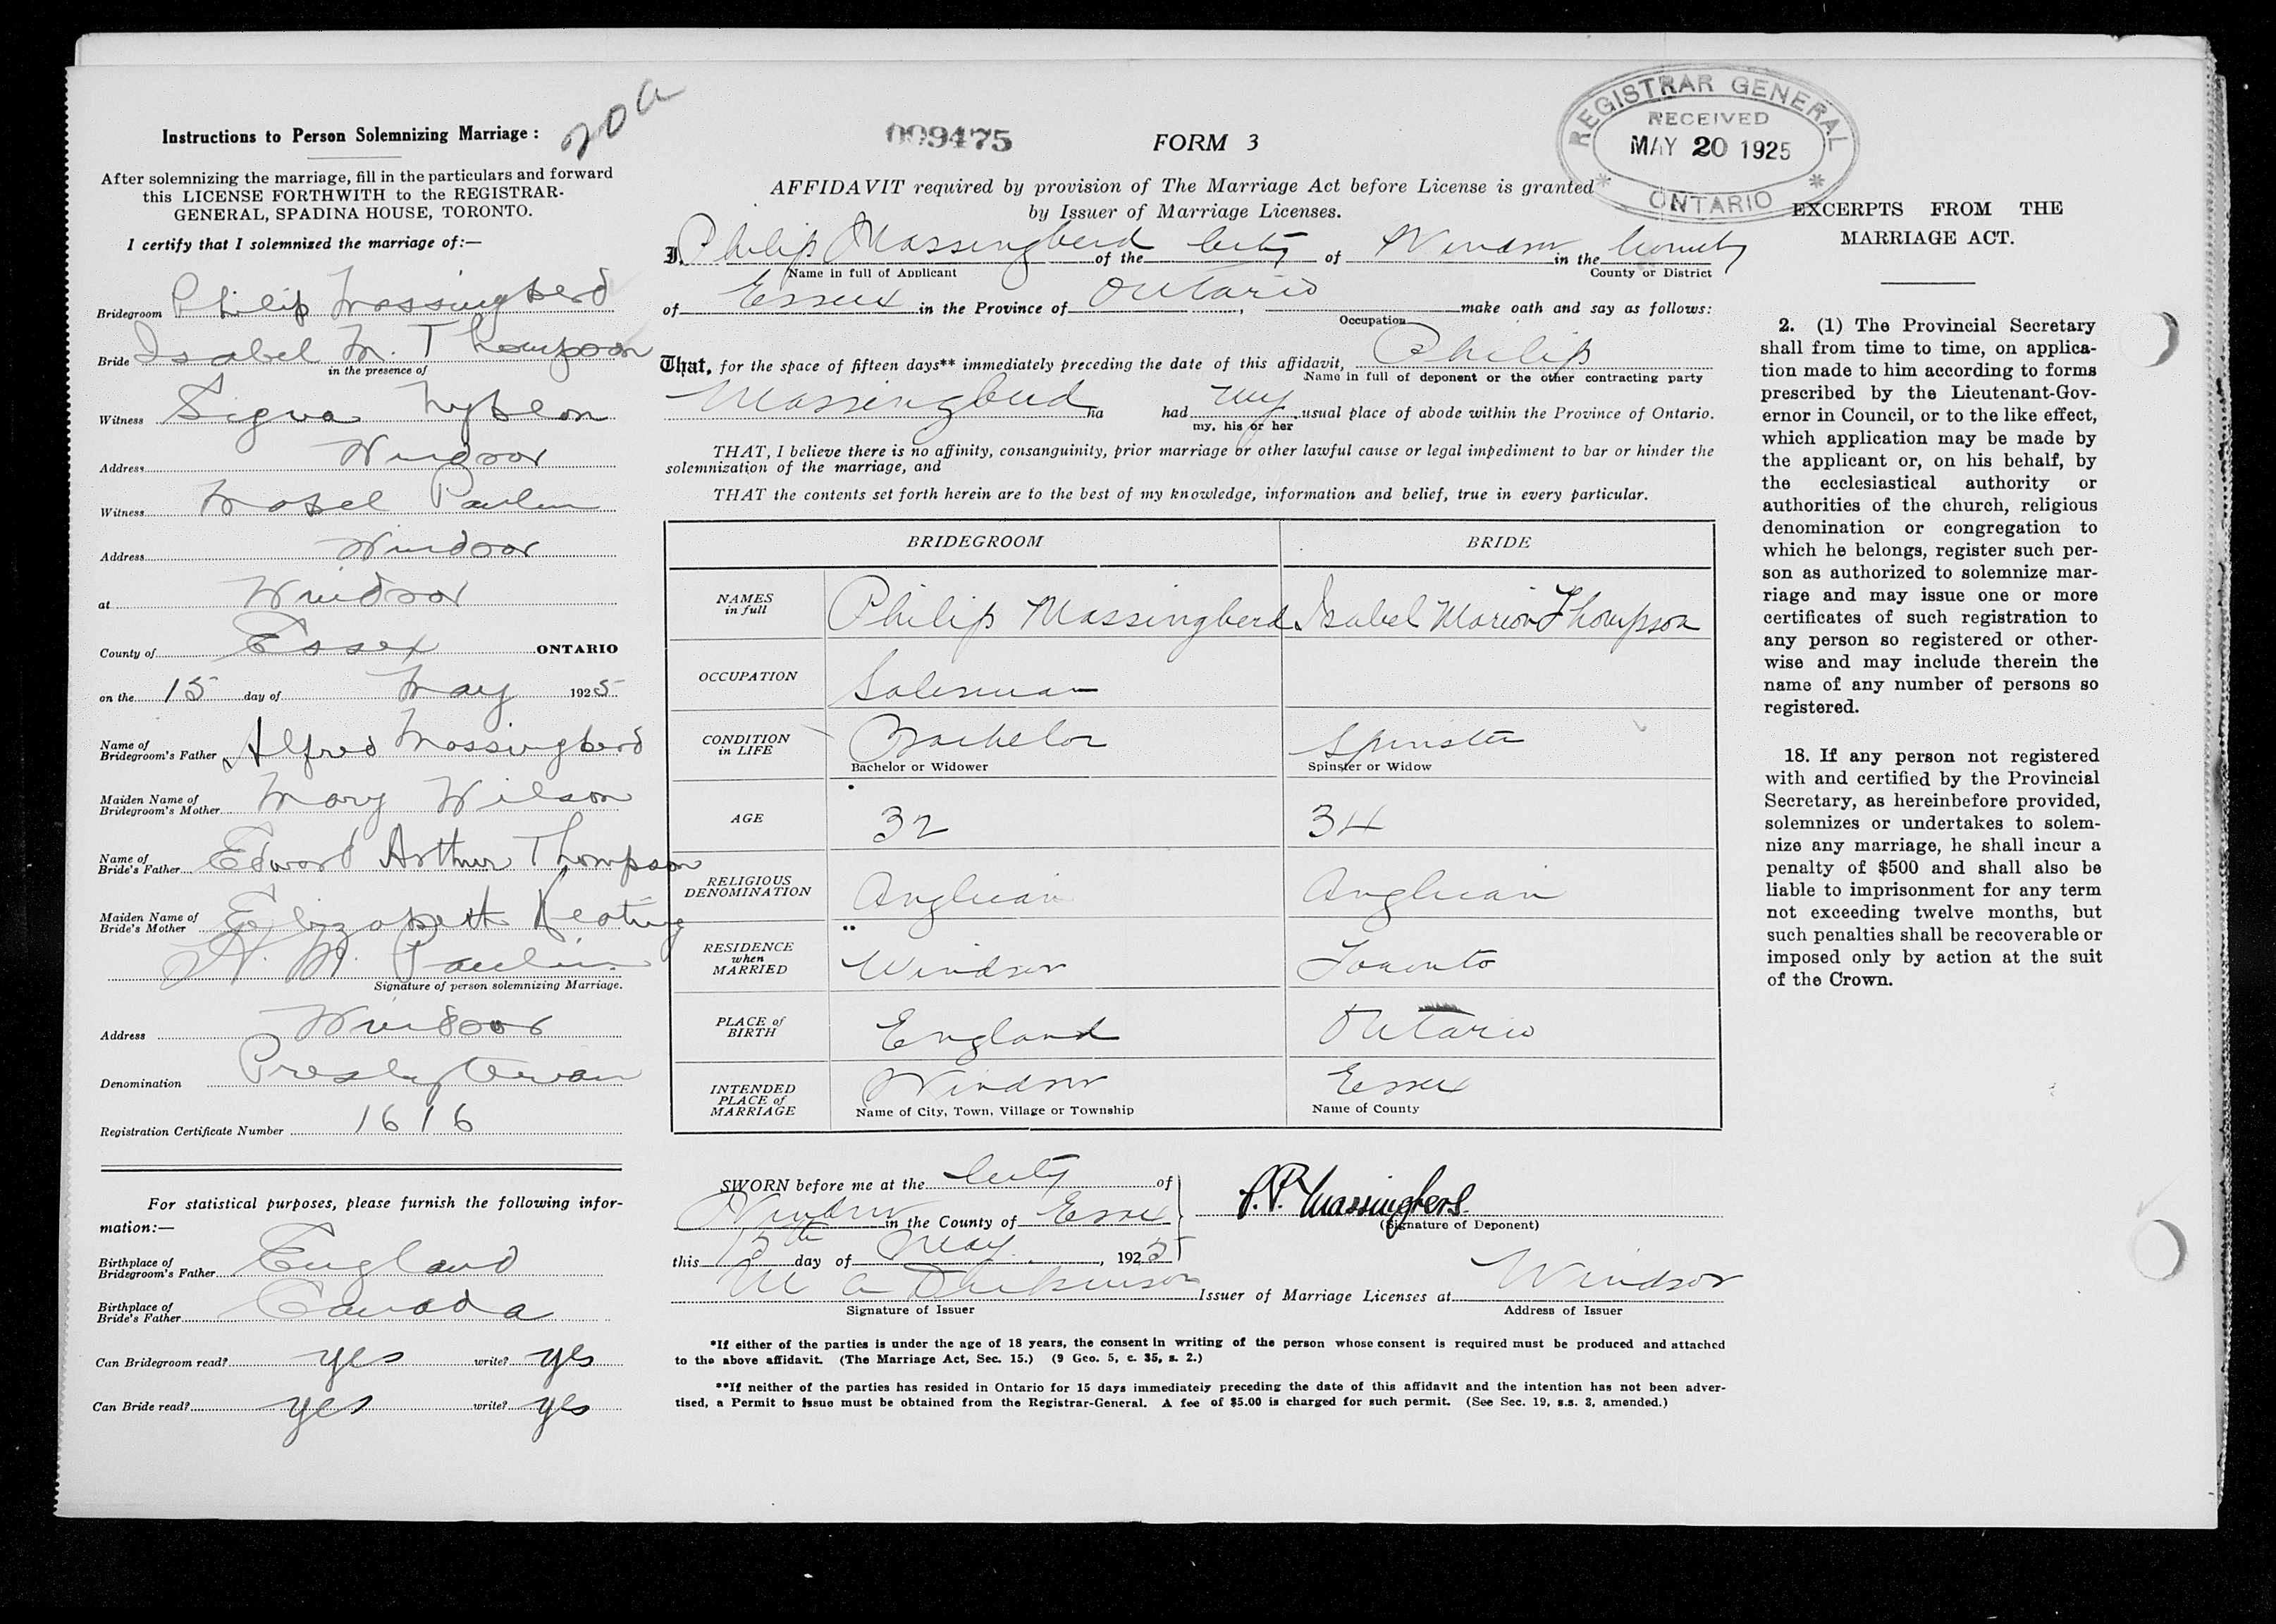 20a
Instructions to Person Solemnizing Marriage:
After solemnizing the marriage, fill in the particulars and forward
this LICENSE FORTHWITH to the REGISTRAR-
GENERAL, SPADINA HOUSE, TORONTO.
I certify that I solemnized the marriage of:—
Bridegroom Philip Massingberd
Bride Isabel M. Thompson
in the presence of
Witness Signa
Address Windsor
Witness Mabel Paulin
Address Windsor
at Windsor
County of Essex ONTARIO
on the 15 day of May 1925
Name of
Bridegroom's Father Alfred Massingberd
Maiden Name of
Bridegroom's Mother Mary Wilson
Name of
Bride's Father Edward Arthur Thompson
Maiden Name of
Bride's Mother Elizabeth Keating
H. M. Paulin
Signature of person solemnizing Marriage.
Address Windsor
Denomination Presbyterian
Registration Certificate Number 1616
For statistical purposes, please furnish the following infor-
mation:—
Birthplace of
Bridegroom's Father England
Birthplace of
Bride's Father Canada
Can Bridegroom read? yes write? yes
Can Bride read? yes write? yes
009475 FORM 3
REGISTRAR GENERAL
RECEIVED
MAY 20 1925
ONTARIO
AFFIDAVIT required by provision of The Marriage Act before License is granted
by Issuer of Marriage Licenses.
I, Philip Massingberd of the City of Windsor in the County
Name in full of Applicant County or District
of Essex in the Province of Ontario, make oath and say as follows:
Occupation
That, for the space of fifteen days** immediately preceding the date of this affidavit, Philip
Name in full of deponent or the other contracting party
Massingberd ha had my usual place of abode within the Province of Ontario.
my, his or her
THAT, I believe there is no affinity, consanguinity, prior marriage or other lawful cause or legal impediment to bar or hinder the
solemnization of the marriage, and
THAT the contents set forth herein are to the best of my knowledge, information and belief, true in every particular.
BRIDEGROOM BRIDE
NAMES
in full Philip Massingberd Isabel Marion Thompson
OCCUPATION Salesman
CONDITION
in LIFE Bachelor Spinster
Bachelor or Widower Spinster or Widow
AGE 32 34
RELIGIOUS
DENOMINATION Anglican Anglican
RESIDENCE
when
MARRIED Windsor Toronto
PLACE of
BIRTH England Ontario
INTENDED
PLACE of
MARRIAGE Windsor Essex
Name of City, Town, Village or Township Name of County
SWORN before me at the City of
Windsor in the County of Essex
this 15th day of May, 1925
P.P. Massingberd.
(Signature of Deponent)
M A Dickinson Issuer of Marriage Licenses at Windsor
Signature of Issuer Address of Issuer
*If either of the parties is under the age of 18 years, the consent in writing of the person whose consent is required must be produced and attached
to the above affidavit. (The Marriage Act, Sec. 15.) (9 Geo. 5, c. 35, s. 2.)
**If neither of the parties has resided in Ontario for 15 days immediately preceding the date of this affidavit and the intention has not been adver-
tised, a Permit to Issue must be obtained from the Registrar-General. A fee of $5.00 is charged for such permit. (See Sec. 19, s.s. 3, amended.)
EXCERPTS FROM THE
MARRIAGE ACT.
2. (1) The Provincial Secretary
shall from time to time, on applica-
tion made to him according to forms
prescribed by the Lieutenant-Gov-
ernor in Council, or to the like effect,
which application may be made by
the applicant or, on his behalf, by
the ecclesiastical authority or
authorities of the church, religious
denomination or congregation to
which he belongs, register such per-
son as authorized to solemnize mar-
riage and may issue one or more
certificates of such registration to
any person so registered or other-
wise and may include therein the
name of any number of persons so
registered.
18. If any person not registered
with and certified by the Provincial
Secretary, as hereinbefore provided,
solemnizes or undertakes to solem-
nize any marriage, he shall incur a
penalty of $500 and shall also be
liable to imprisonment for any term
not exceeding twelve months, but
such penalties shall be recoverable or
imposed only by action at the suit
of the Crown.